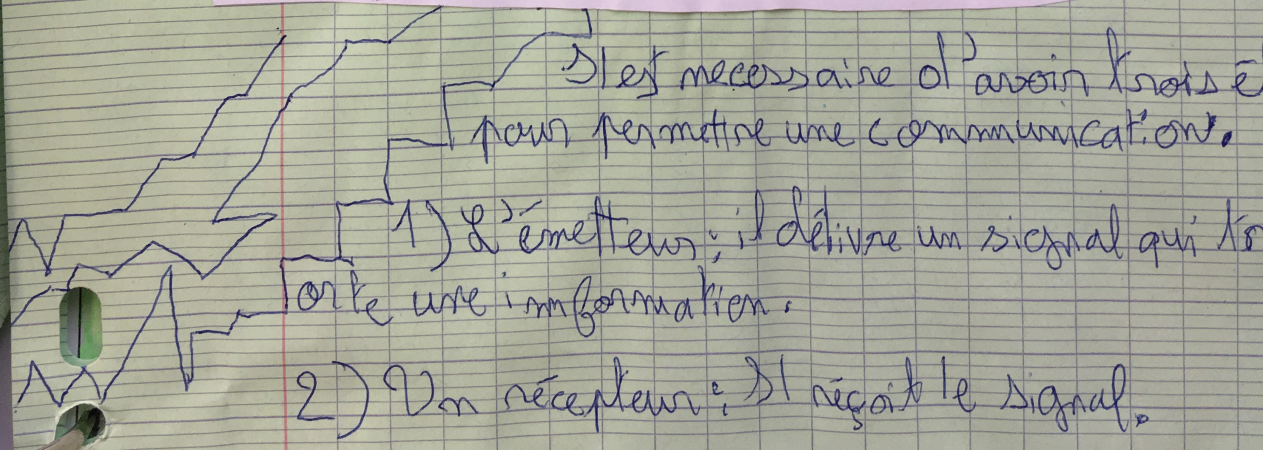 Il est necessaire d'avoir trois é
pour permettre une communication.
1) L'émetteur; il délivre un signal qui tr
orte une information.
2) Un récepteur; Il réçoit le signal.